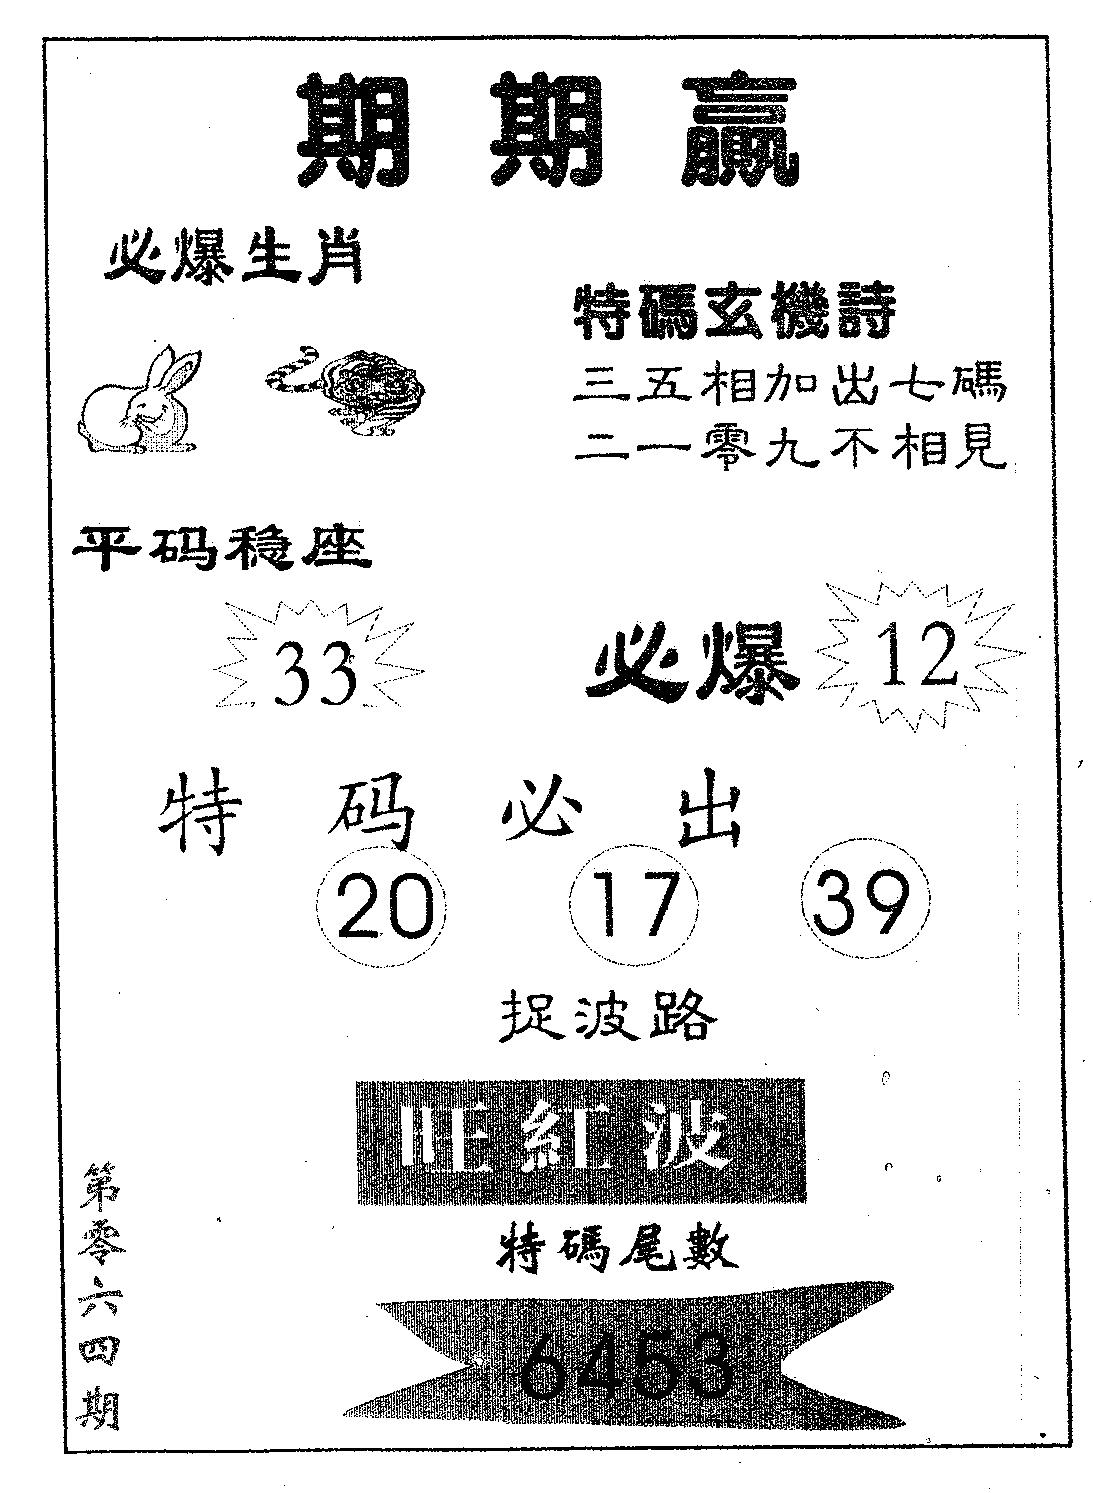 期期贏
必爆生肖
特碼玄機詩
三五相加出七碼
二一零九不相見
平码稳座
33
必爆 12
特码必出
20 17 39
捉波路
旺紅波
特碼尾數
6453
第零六四期